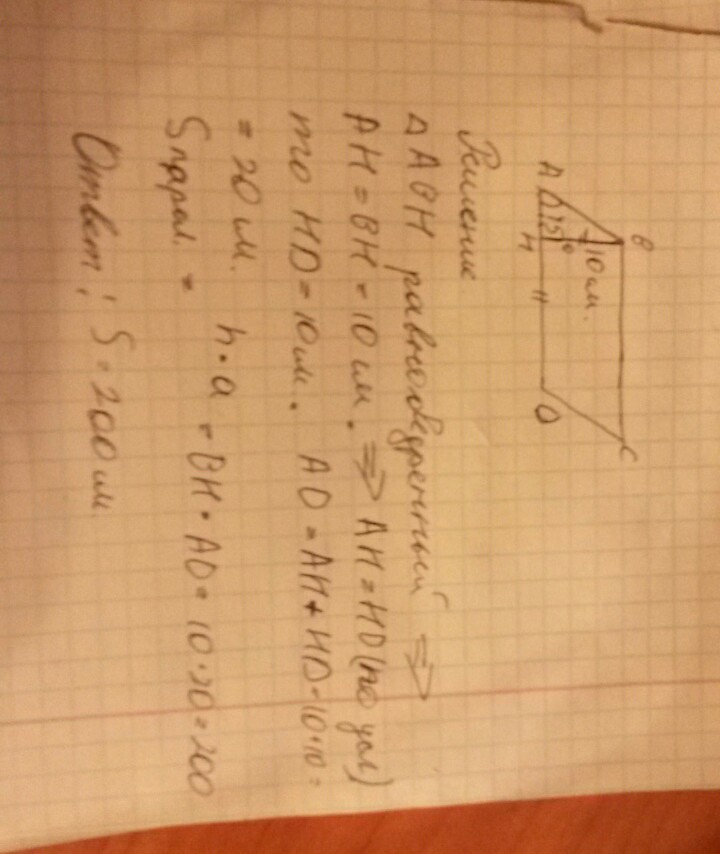 B
C
10 см.
A
45°
H
D
Решение
Δ ABH равнобедренный ⇒
AH = BH = 10 см. ⇒ AH = HD (по усл)
то HD = 10 см. AD = AH + HD = 10 + 10 =
= 20 см. h · a = BH · AD = 10 · 20 = 200
Sпарал. =
Ответ: S = 200 см.